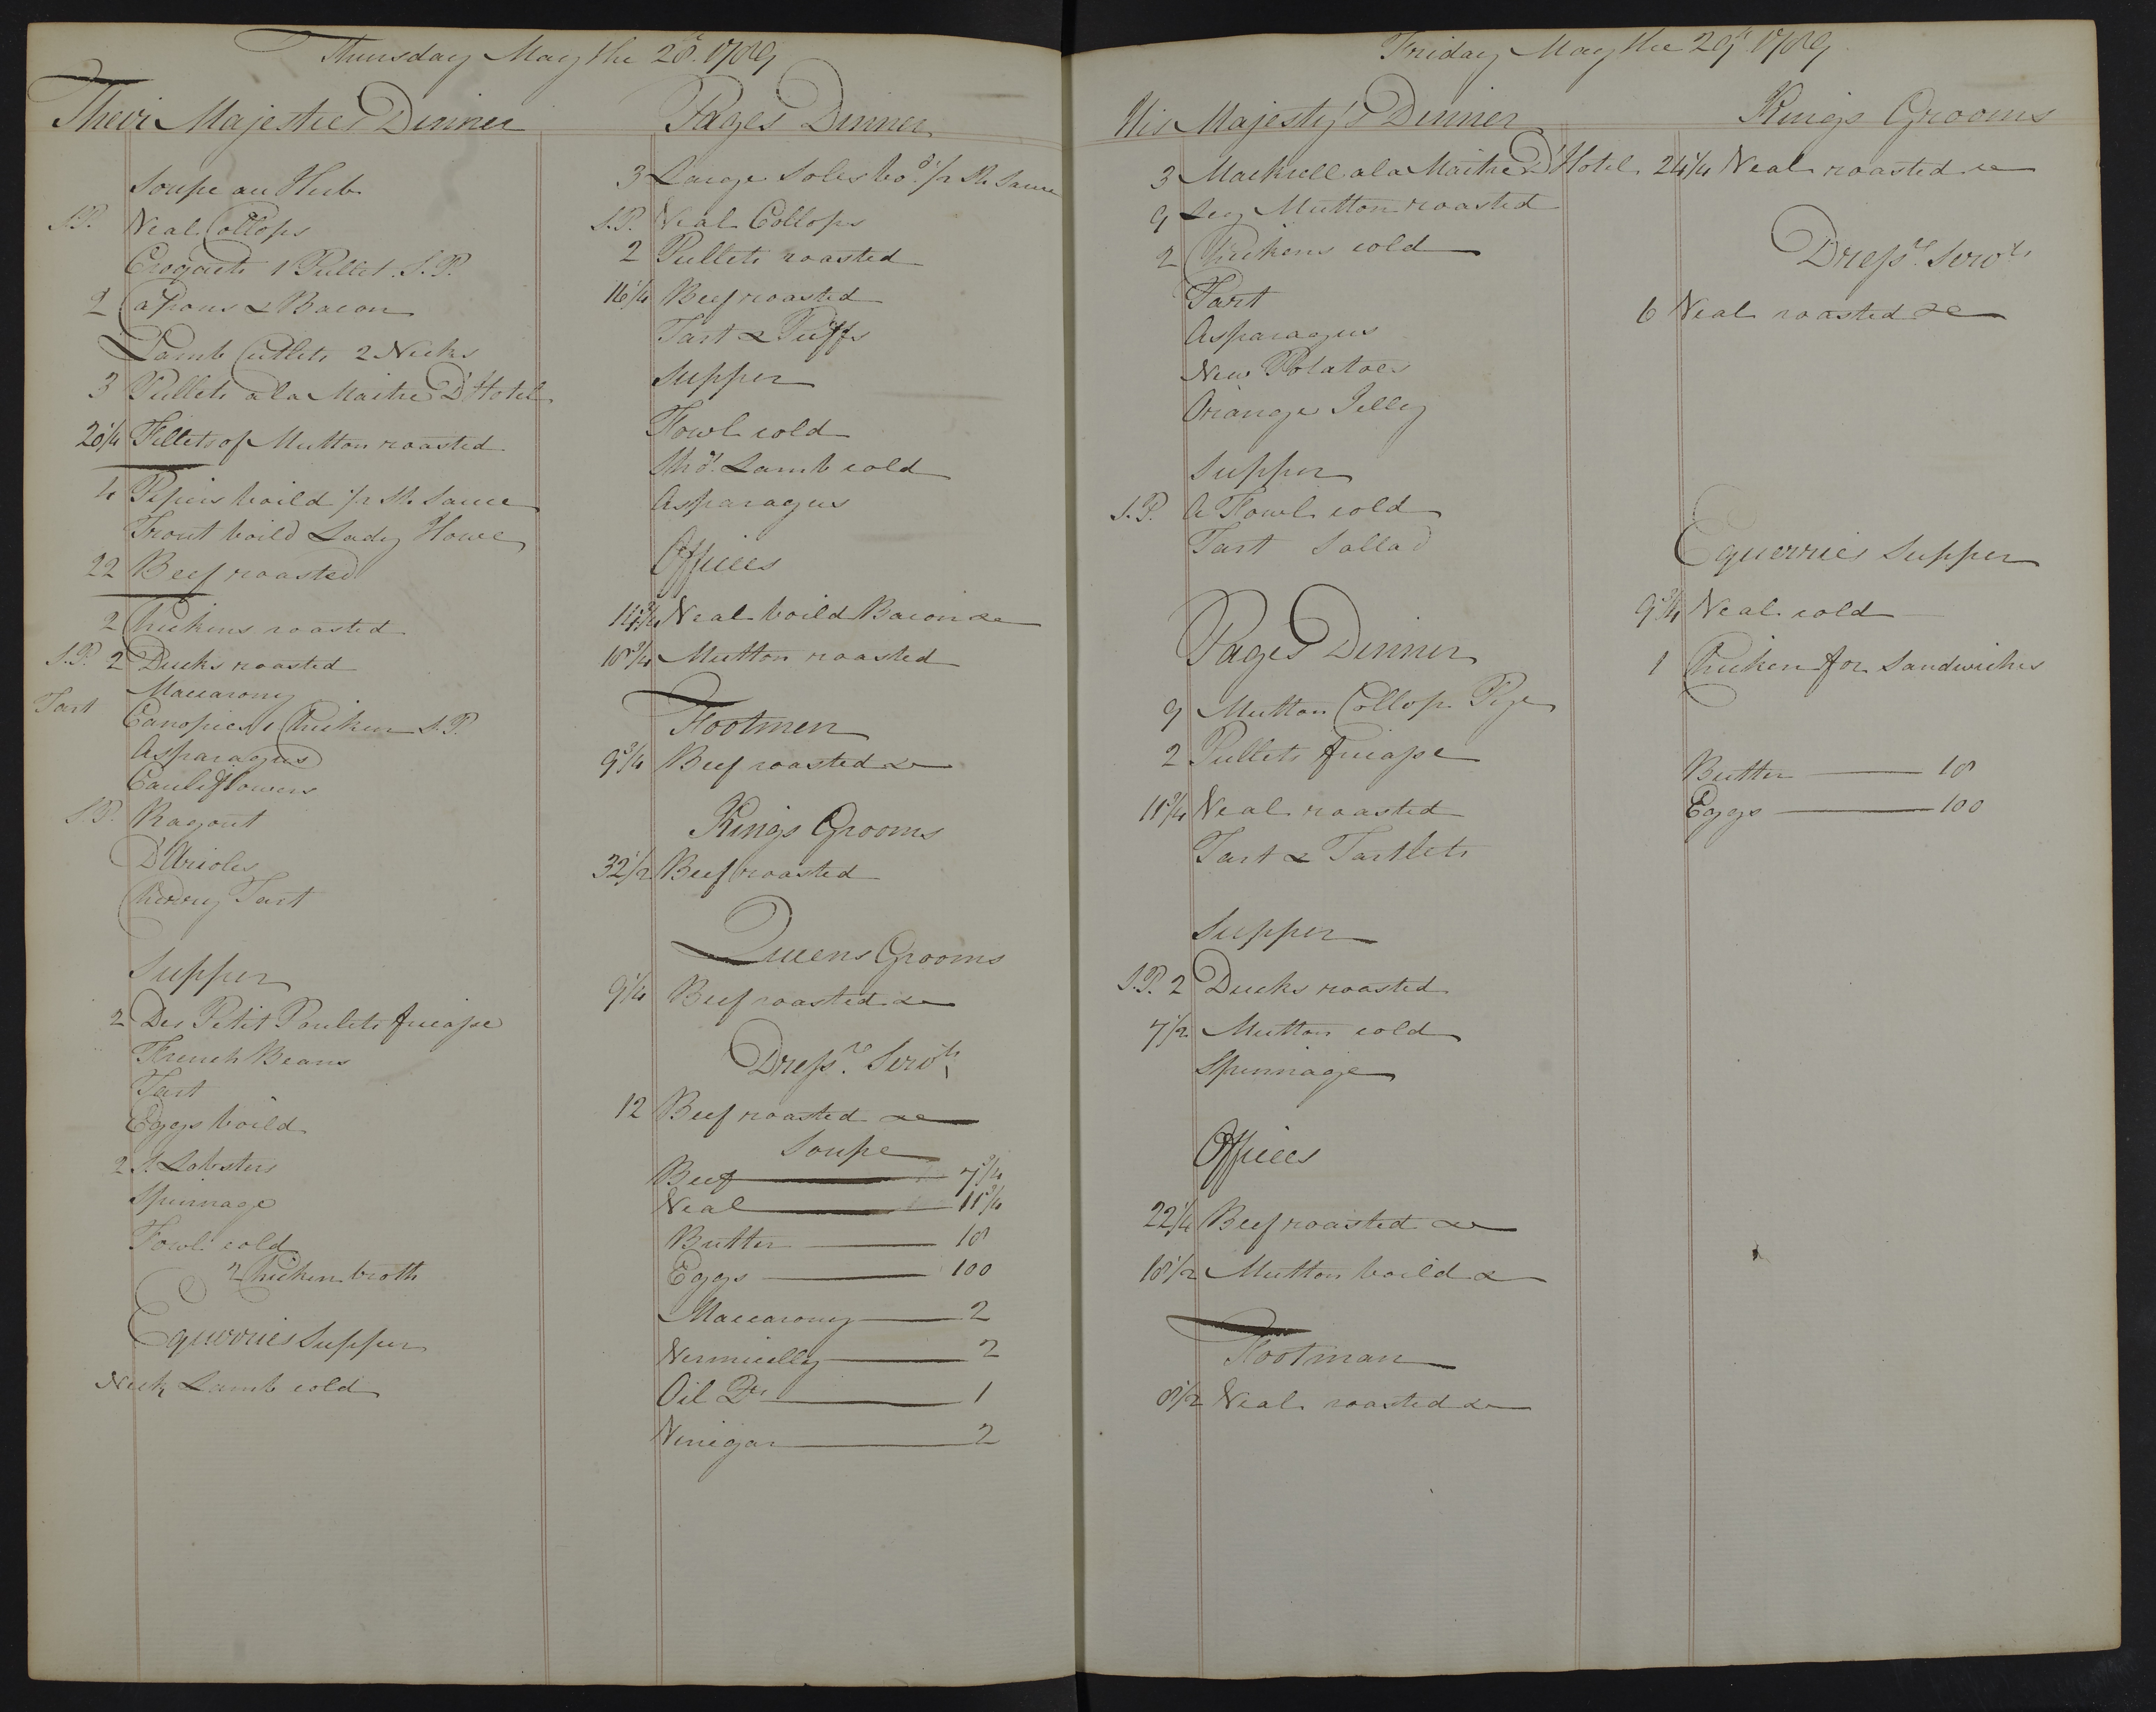 Thursday May the 28th 1789
Their Majesties Dinner
Soupe au Herb
S.P. Veal Collops
Croquets 1 Pullet S.P.
2 Capons & Bacon
Lamb Cutlets 2 Necks
3 Pullets a la Maitre D'Hotel
20 1/4 Fillets of Mutton roasted
4 boild Sh. Sauce
Trout boild Lady Howe
22 Beef roasted
2 Chickens roasted
S.P. 2 Ducks roasted
Maccarony
Tart
Canopies 1 Chicken S.P.
Asparagus
Cauliflowers
S.P. Ragout
D'Arioles
Cherry Tart
Supper
2 Des Petit Poulets fricasse
French Beans
Tart
Eggs boild
2 Lobsters
Spinnage
Fowl cold
2 Chicken broth
Equerries Supper
Neck Lamb cold
Pages Dinner
3 Large Soles bod. Sh Sauce
S.P. Veal Collops
2 Pullets roasted
16 1/4 Beef roasted
Tart & Puffs
Supper
Fowl cold
Shd. Lamb cold
Asparagus
Offices
14 3/4 Veal boild Bacon &c
18 3/4 Mutton roasted
Footmen
9 3/4 Beef roasted &c
Kings Grooms
32 1/2 Beef roasted
Queens Grooms
9 1/4 Beef roasted &c
Dressrs. Servts
12 Beef roasted &c
Soupe
Beef 7 3/4
Veal 11 3/4
Butter 18
Eggs 100
Maccarony 2
Vermicelly 2
Oil Qts 1
Vinigar 2
Friday May the 29th 1789
His Majesty's Dinner
3 Mackrell a la Maitre D'Hotel
9 Leg Mutton roasted
2 Chickens cold
Tart
Asparagus
New Potatoes
Orange Jelly
Supper
S.P. A Fowl cold
Tart Sallad
Pages Dinner
9 Mutton Collop Pye
2 Pullets fricasse
11 3/4 Veal roasted
Tart & Tartlets
Supper
S.P. 2 Ducks roasted
7 1/2 Mutton cold
Spinnage
Offices
22 1/4 Beef roasted &c
18 1/2 Mutton boild &
Footman
8 1/2 Veal roasted &c
Kings Grooms
24 1/4 Veal roasted &c
Dressrs. Servts
6 Veal roasted &c
Equerries Supper
9 3/4 Veal cold
1 Chicken for Sandwiches
Butter 18
Eggs 100